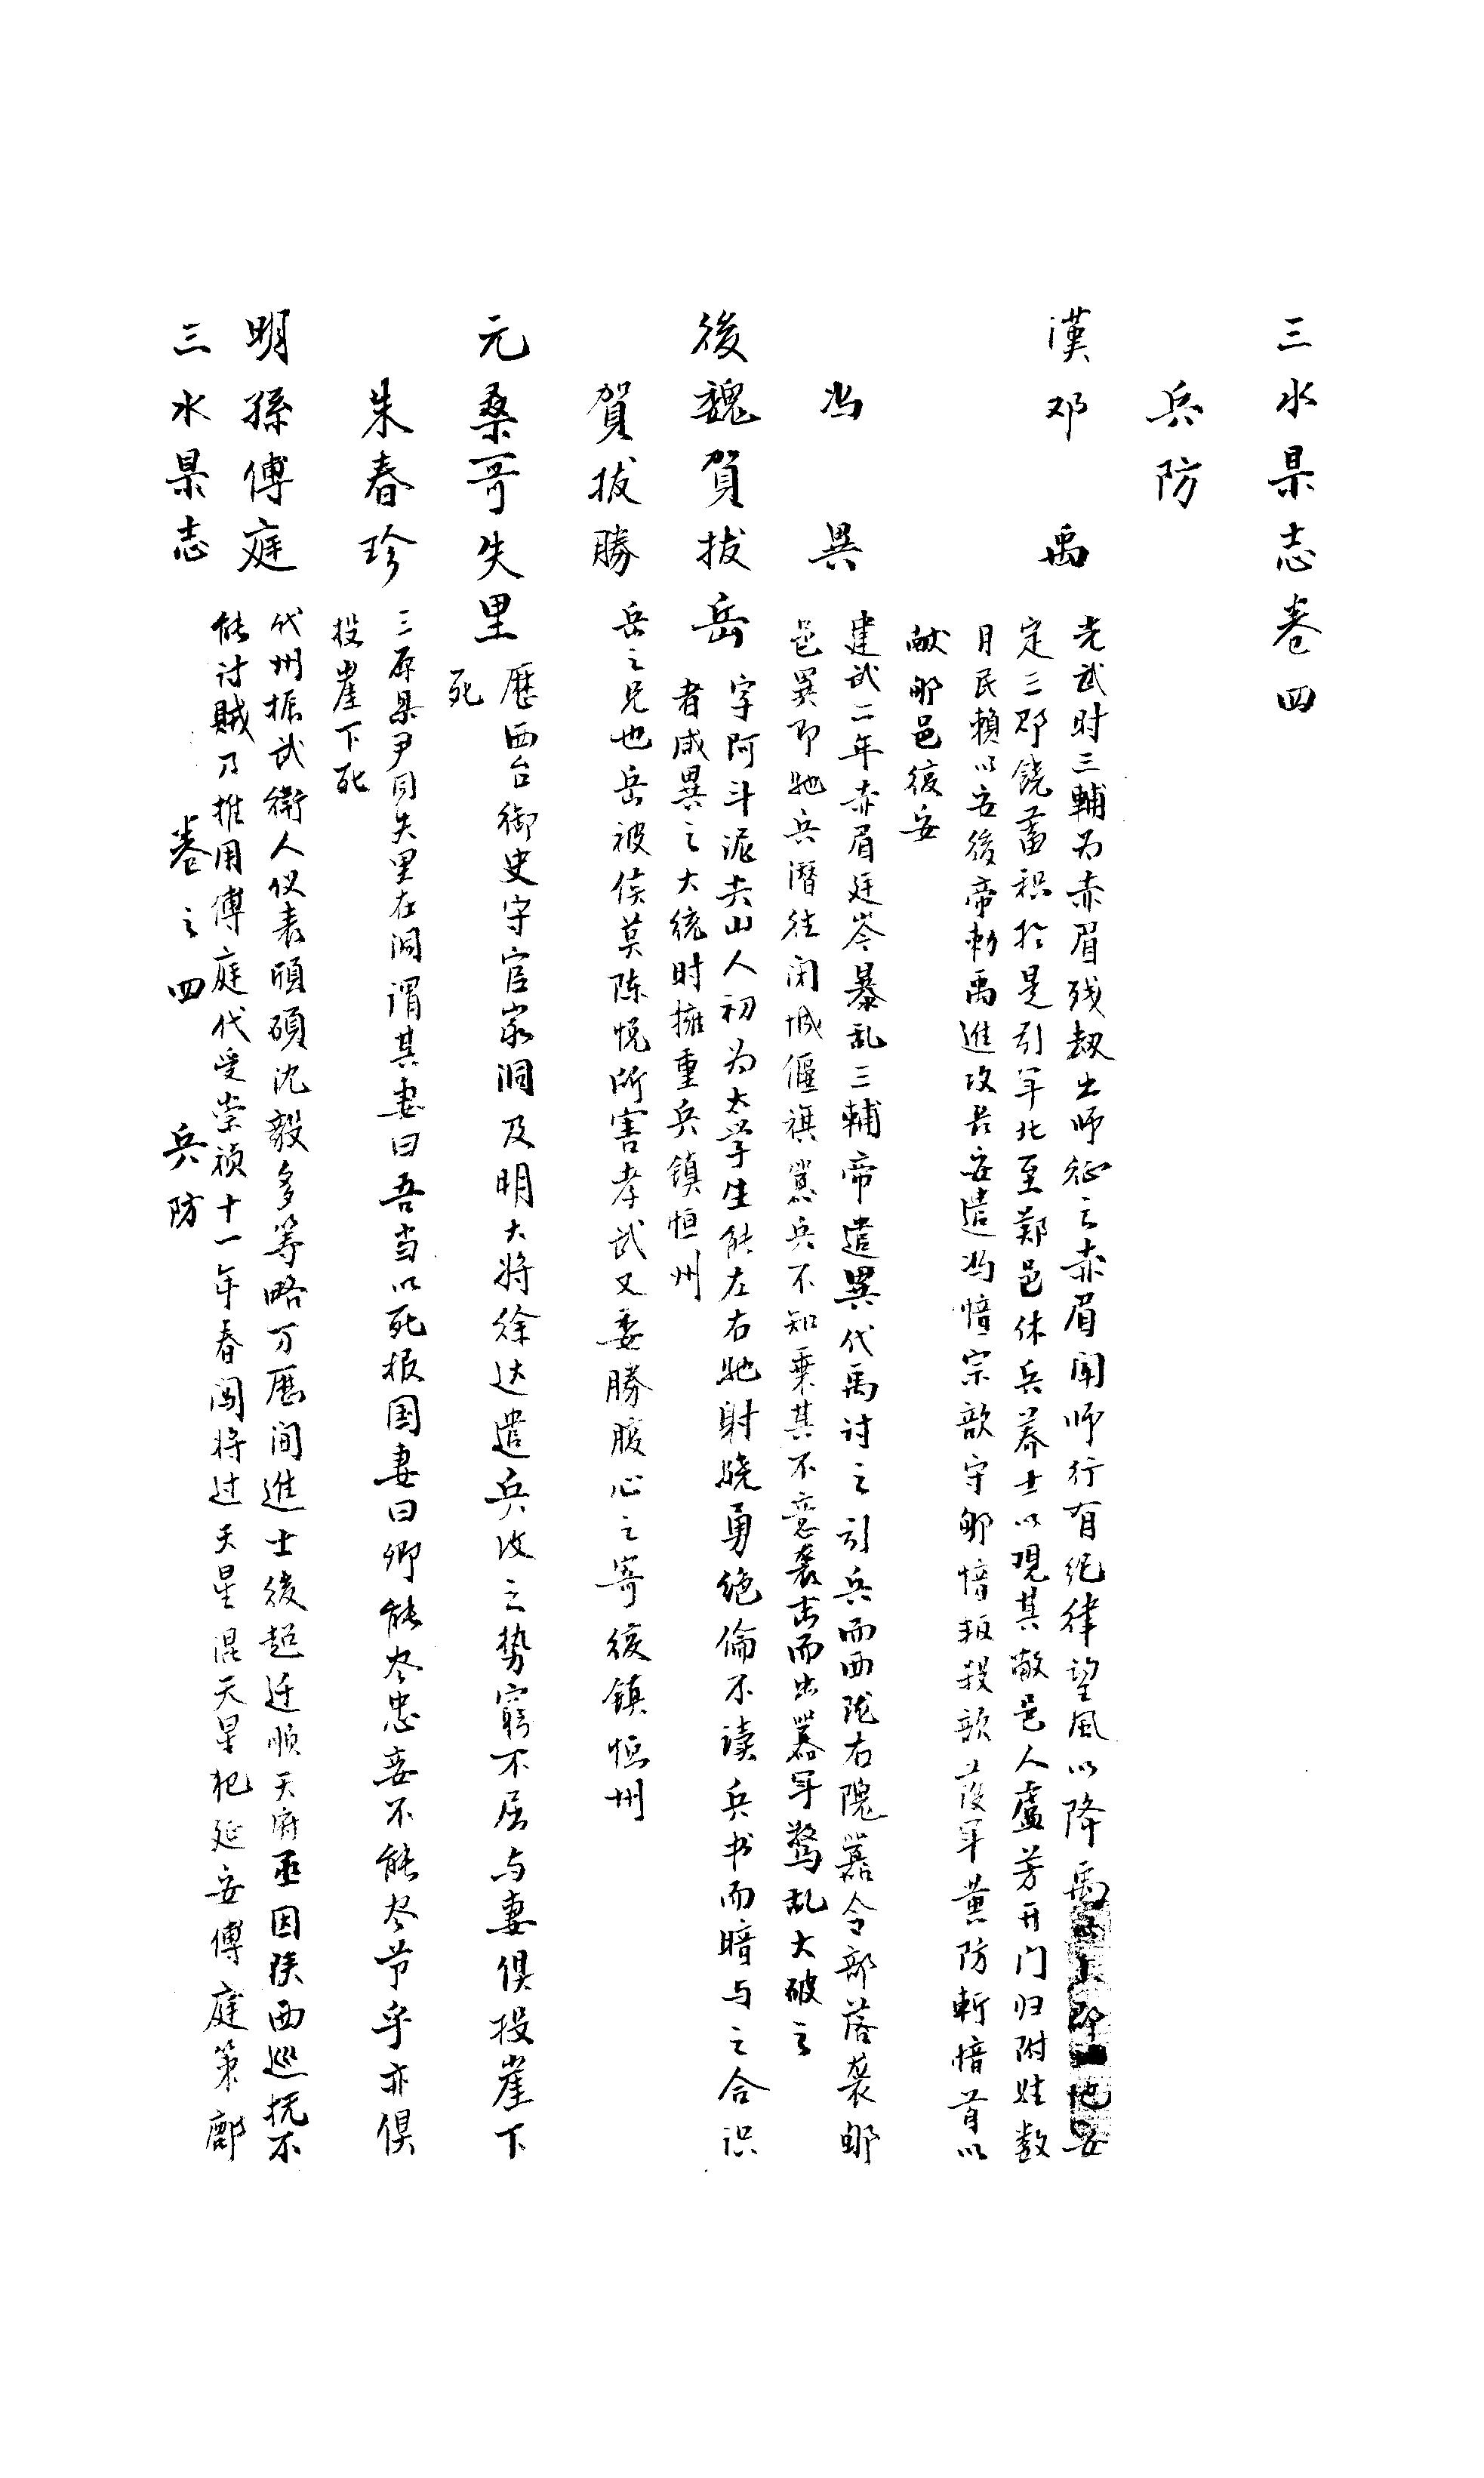 三水县志卷四
兵防
漢邓禹
光武时三輔为赤眉残劫出师征之赤眉闻师行有纪律望风以降禹
定三郡饶蓄积於是引军北至鄭邑休兵养士以覌其敝邑人盧芳开门归附姓数
月民賴以安後帝勅禹進攻长安遣冯愔宗歆守邠愔叛殺歆護军黄防斬愔首以
献邠邑復安
冯異
建武二年赤眉延岑暴乱三輔帝遣異代禹讨之引兵而西陇右隗嚣令部落袭邠
邑異即驰兵潛往闭城偃旗嚣兵不知乗其不意袭击而出嚣军驚乱大破之
後魏賀拔岳
字阿斗泥尖山人初为太学生能左右驰射驍勇绝倫不读兵书而暗与之合识
者咸異之大统时擁重兵镇恒州
賀拔勝
岳之兄也岳被侯莫陈悦所害孝武又委勝腹心之寄復镇恒州
元桑哥失里
歷西台御史守官家洞及明大将徐达遣兵攻之势窮不屈与妻俱投崖下
死
朱春珍
三原县尹同失里在洞谓其妻曰吾当以死报国妻曰卿能尽忠妾不能尽节乎亦俱
投崖下死
明孫傅庭
代州振武衛人仪表頎碩沈毅多筹略万歷间進士後超迁順天府丞因陕西巡抚不
能讨贼乃推用傅庭代受崇祯十一年春闯将过天星混天星犯延安傅庭第鄜
三水县志 卷之四 兵防